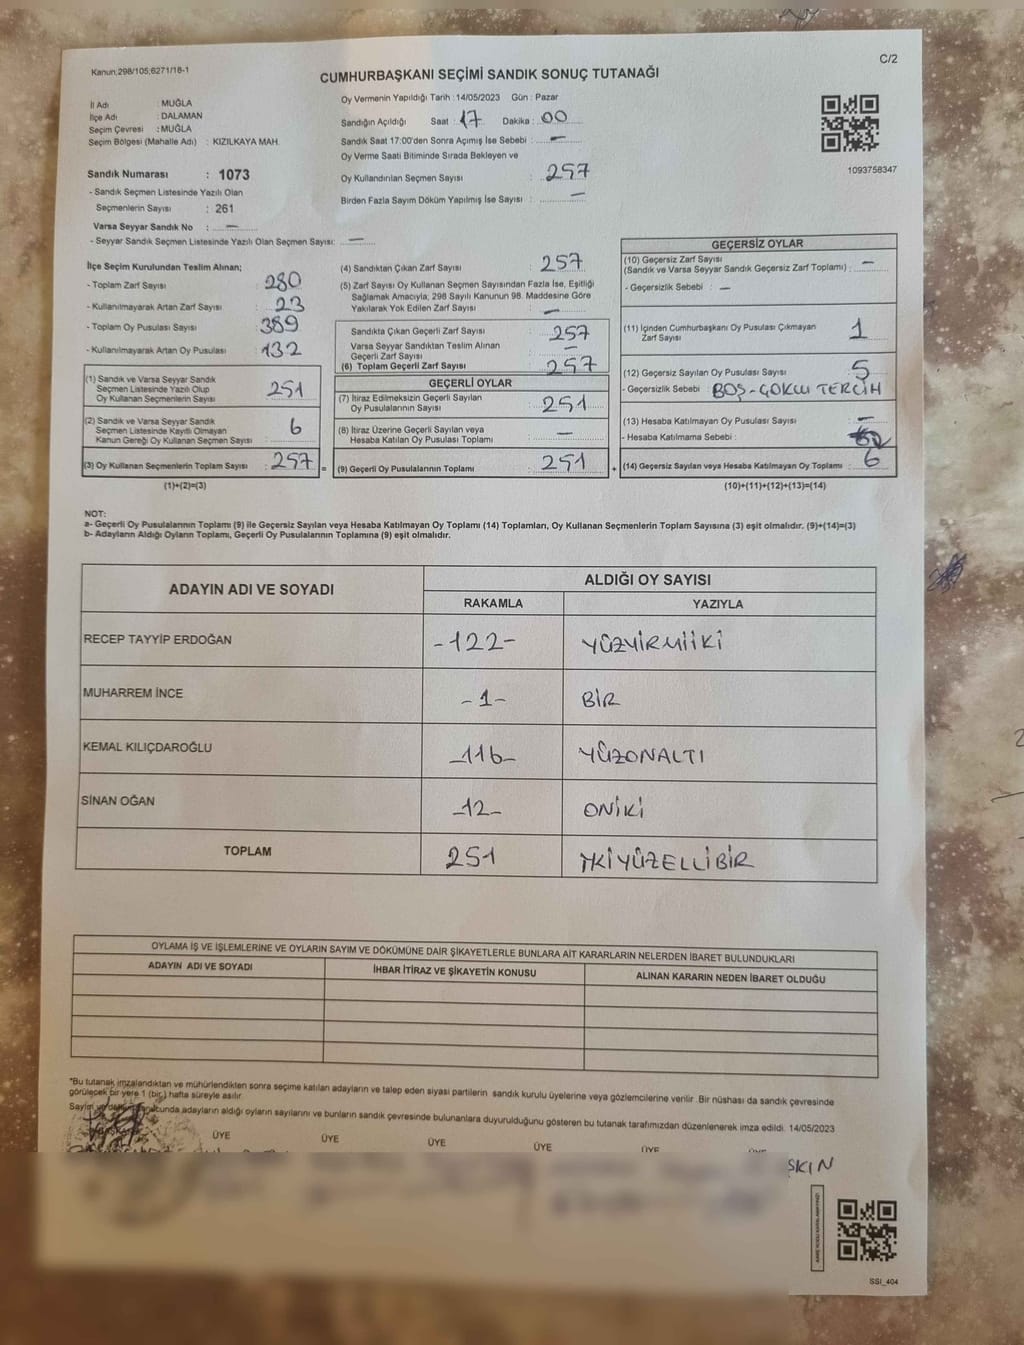 Kanun;298/105;6271/16-1
C/2
CUMHURBAŞKANI SEÇİMİ SANDIK SONUÇ TUTANAĞI
İl Adı : MUĞLA
İlçe Adı : DALAMAN
Seçim Çevresi : MUĞLA
Seçim Bölgesi (Mahalle Adı) : KIZILKAYA MAH.
Sandık Numarası : 1073
- Sandık Seçmen Listesinde Yazılı Olan
Seçmenlerin Sayısı : 261
Varsa Seyyar Sandık No : —
- Seyyar Sandık Seçmen Listesinde Yazılı Olan Seçmen Sayısı: —
Oy Vermenin Yapıldığı Tarih : 14/05/2023 Gün : Pazar
Sandığın Açıldığı Saat : 17 Dakika : 00
Sandık Saat 17:00'den Sonra Açımış İse Sebebi : —
Oy Verme Saati Bitiminde Sırada Bekleyen ve
Oy Kullandırılan Seçmen Sayısı : 257
Birden Fazla Sayım Döküm Yapılmış İse Sayısı : —
1093758347
İlçe Seçim Kurulundan Teslim Alınan;
- Toplam Zarf Sayısı : 280
- Kullanılmayarak Artan Zarf Sayısı : 23
- Toplam Oy Pusulası Sayısı : 389
- Kullanılmayarak Artan Oy Pusulası : 132
(1) Sandık ve Varsa Seyyar Sandık
Seçmen Listesinde Yazılı Olup
Oy Kullanan Seçmenlerin Sayısı : 251
(2) Sandık ve Varsa Seyyar Sandık
Seçmen Listesinde Kayıtlı Olmayan
Kanun Gereği Oy Kullanan Seçmen Sayısı : 6
(3) Oy Kullanan Seçmenlerin Toplam Sayısı : 257 =
(1)+(2)=(3)
(4) Sandıktan Çıkan Zarf Sayısı : 257
(5) Zarf Sayısı Oy Kullanan Seçmen Sayısından Fazla İse, Eşitliği
Sağlamak Amacıyla; 298 Sayılı Kanunun 98. Maddesine Göre
Yakılarak Yok Edilen Zarf Sayısı : —
Sandıkta Çıkan Geçerli Zarf Sayısı : 257
Varsa Seyyar Sandıktan Teslim Alınan
Geçerli Zarf Sayısı : —
(6) Toplam Geçerli Zarf Sayısı : 257
GEÇERLİ OYLAR
(7) İtiraz Edilmeksizin Geçerli Sayılan
Oy Pusulalarının Sayısı : 251
(8) İtiraz Üzerine Geçerli Sayılan veya
Hesaba Katılan Oy Pusulası Toplamı : —
(9) Geçerli Oy Pusulalarının Toplamı : 251 +
GEÇERSİZ OYLAR
(10) Geçersiz Zarf Sayısı
(Sandık ve Varsa Seyyar Sandık Geçersiz Zarf Toplamı) : —
- Geçersizlik Sebebi : —
(11) İçinden Cumhurbaşkanı Oy Pusulası Çıkmayan
Zarf Sayısı : 1
(12) Geçersiz Sayılan Oy Pusulası Sayısı : 5
- Geçersizlik Sebebi : BOŞ-ÇOKLU TERCİH
(13) Hesaba Katılmayan Oy Pusulası Sayısı : —
- Hesaba Katılmama Sebebi :
(14) Geçersiz Sayılan veya Hesaba Katılmayan Oy Toplamı : 6
(10)+(11)+(12)+(13)=(14)
NOT:
a- Geçerli Oy Pusulalarının Toplamı (9) ile Geçersiz Sayılan veya Hesaba Katılmayan Oy Toplamı (14) Toplamları, Oy Kullanan Seçmenlerin Toplam Sayısına (3) eşit olmalıdır. (9)+(14)=(3)
b- Adayların Aldığı Oyların Toplamı, Geçerli Oy Pusulalarının Toplamına (9) eşit olmalıdır.
ADAYIN ADI VE SOYADI ALDIĞI OY SAYISI
RAKAMLA YAZIYLA
RECEP TAYYİP ERDOĞAN -122- YÜZYİRMİİKİ
MUHARREM İNCE -1- BİR
KEMAL KILIÇDAROĞLU -116- YÜZONALTI
SİNAN OĞAN -12- ONİKİ
TOPLAM 251 İKİYÜZELLİBİR
OYLAMA İŞ VE İŞLEMLERİNE VE OYLARIN SAYIM VE DÖKÜMÜNE DAİR ŞİKAYETLERLE BUNLARA AİT KARARLARIN NELERDEN İBARET BULUNDUKLARI
ADAYIN ADI VE SOYADI İHBAR İTİRAZ VE ŞİKAYETİN KONUSU ALINAN KARARIN NEDEN İBARET OLDUĞU
*Bu tutanak imzalandıktan ve mühürlendikten sonra seçime katılan adayların ve talep eden siyasi partilerin sandık kurulu üyelerine veya gözlemcilerine verilir. Bir nüshası da sandık çevresinde
görülecek bir yere 1 (bir) hafta süreyle asılır.
Sayım ve adayların aldığı oyların sayılarını ve bunların sandık çevresinde bulunanlara duyurulduğunu gösteren bu tutanak tarafımızdan düzenlenerek imza edildi. 14/05/2023
ÜYE ÜYE ÜYE ÜYE ÜYE
ŞKIN
SSI_404